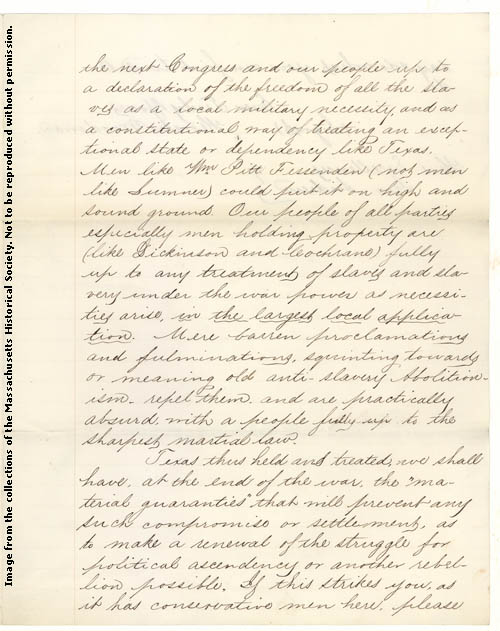 Image from the collections of the Massachusetts Historical Society. Not to be reproduced without permission.
the next Congress and our people up to
a declaration of the freedom of all the sla-
ves as a local military necessity, and as
a constitutional way of treating an excep-
tional state or dependency like Texas.
Men like Wm Pitt Fessenden (not men
like Sumner) could put it on high and
sound ground. Our people of all parties
especially men holding property are
(like Dickinson and Cochrane) fully
up to any treatment of slaves and sla-
very under the war power as necessi-
ties arise, in the largest local applica-
tion. Mere barren proclamations
and fulminations, squinting towards
or meaning old anti-slavery Abolition-
ism, repel them, and are practically
absurd, with a people fully up to the
sharpest martial law.
Texas thus held and treated, we shall
have, at the end of the war, the "ma-
terial guaranties" that will prevent any
such compromise or settlement, as
to make a renewal of the struggle for
political ascendency or another rebel-
lion possible. If this strikes you, as
it has conservative men here, please